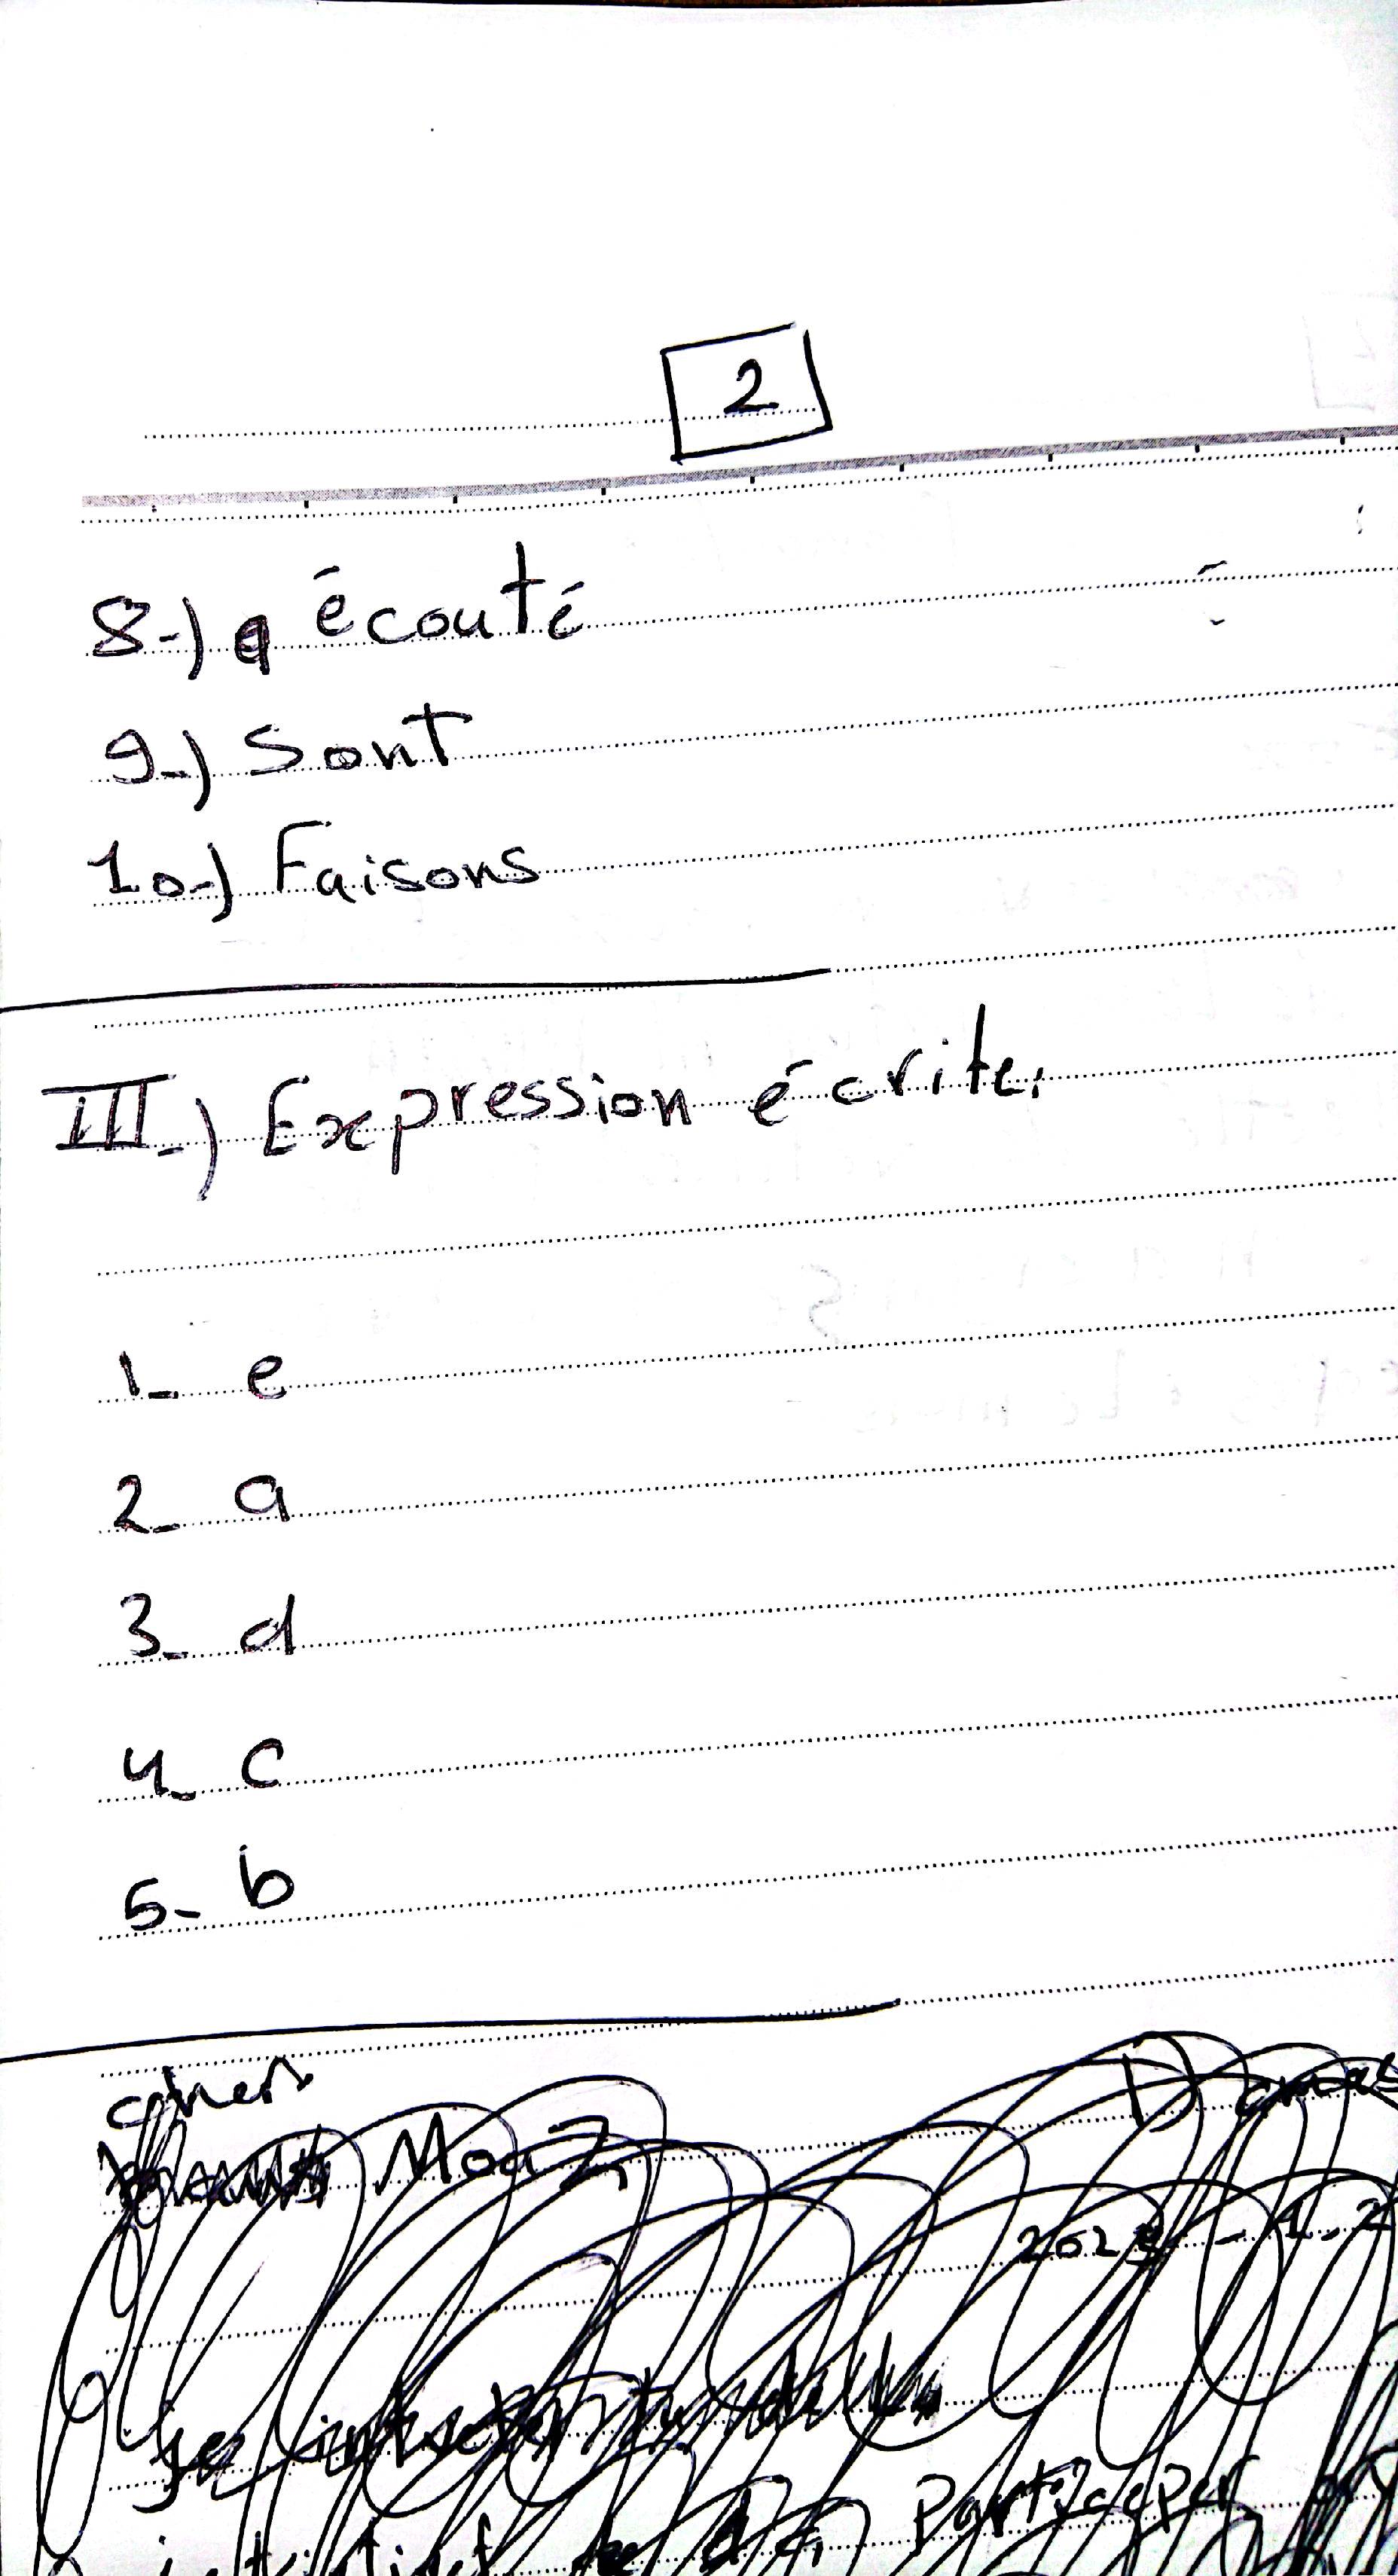 2
8-) a écouté
9-) Sont
10-) Faisons
III-) Expression écrite.
1- e
2- a
3- d
4- c
5- b
cher
Moaz
Participer